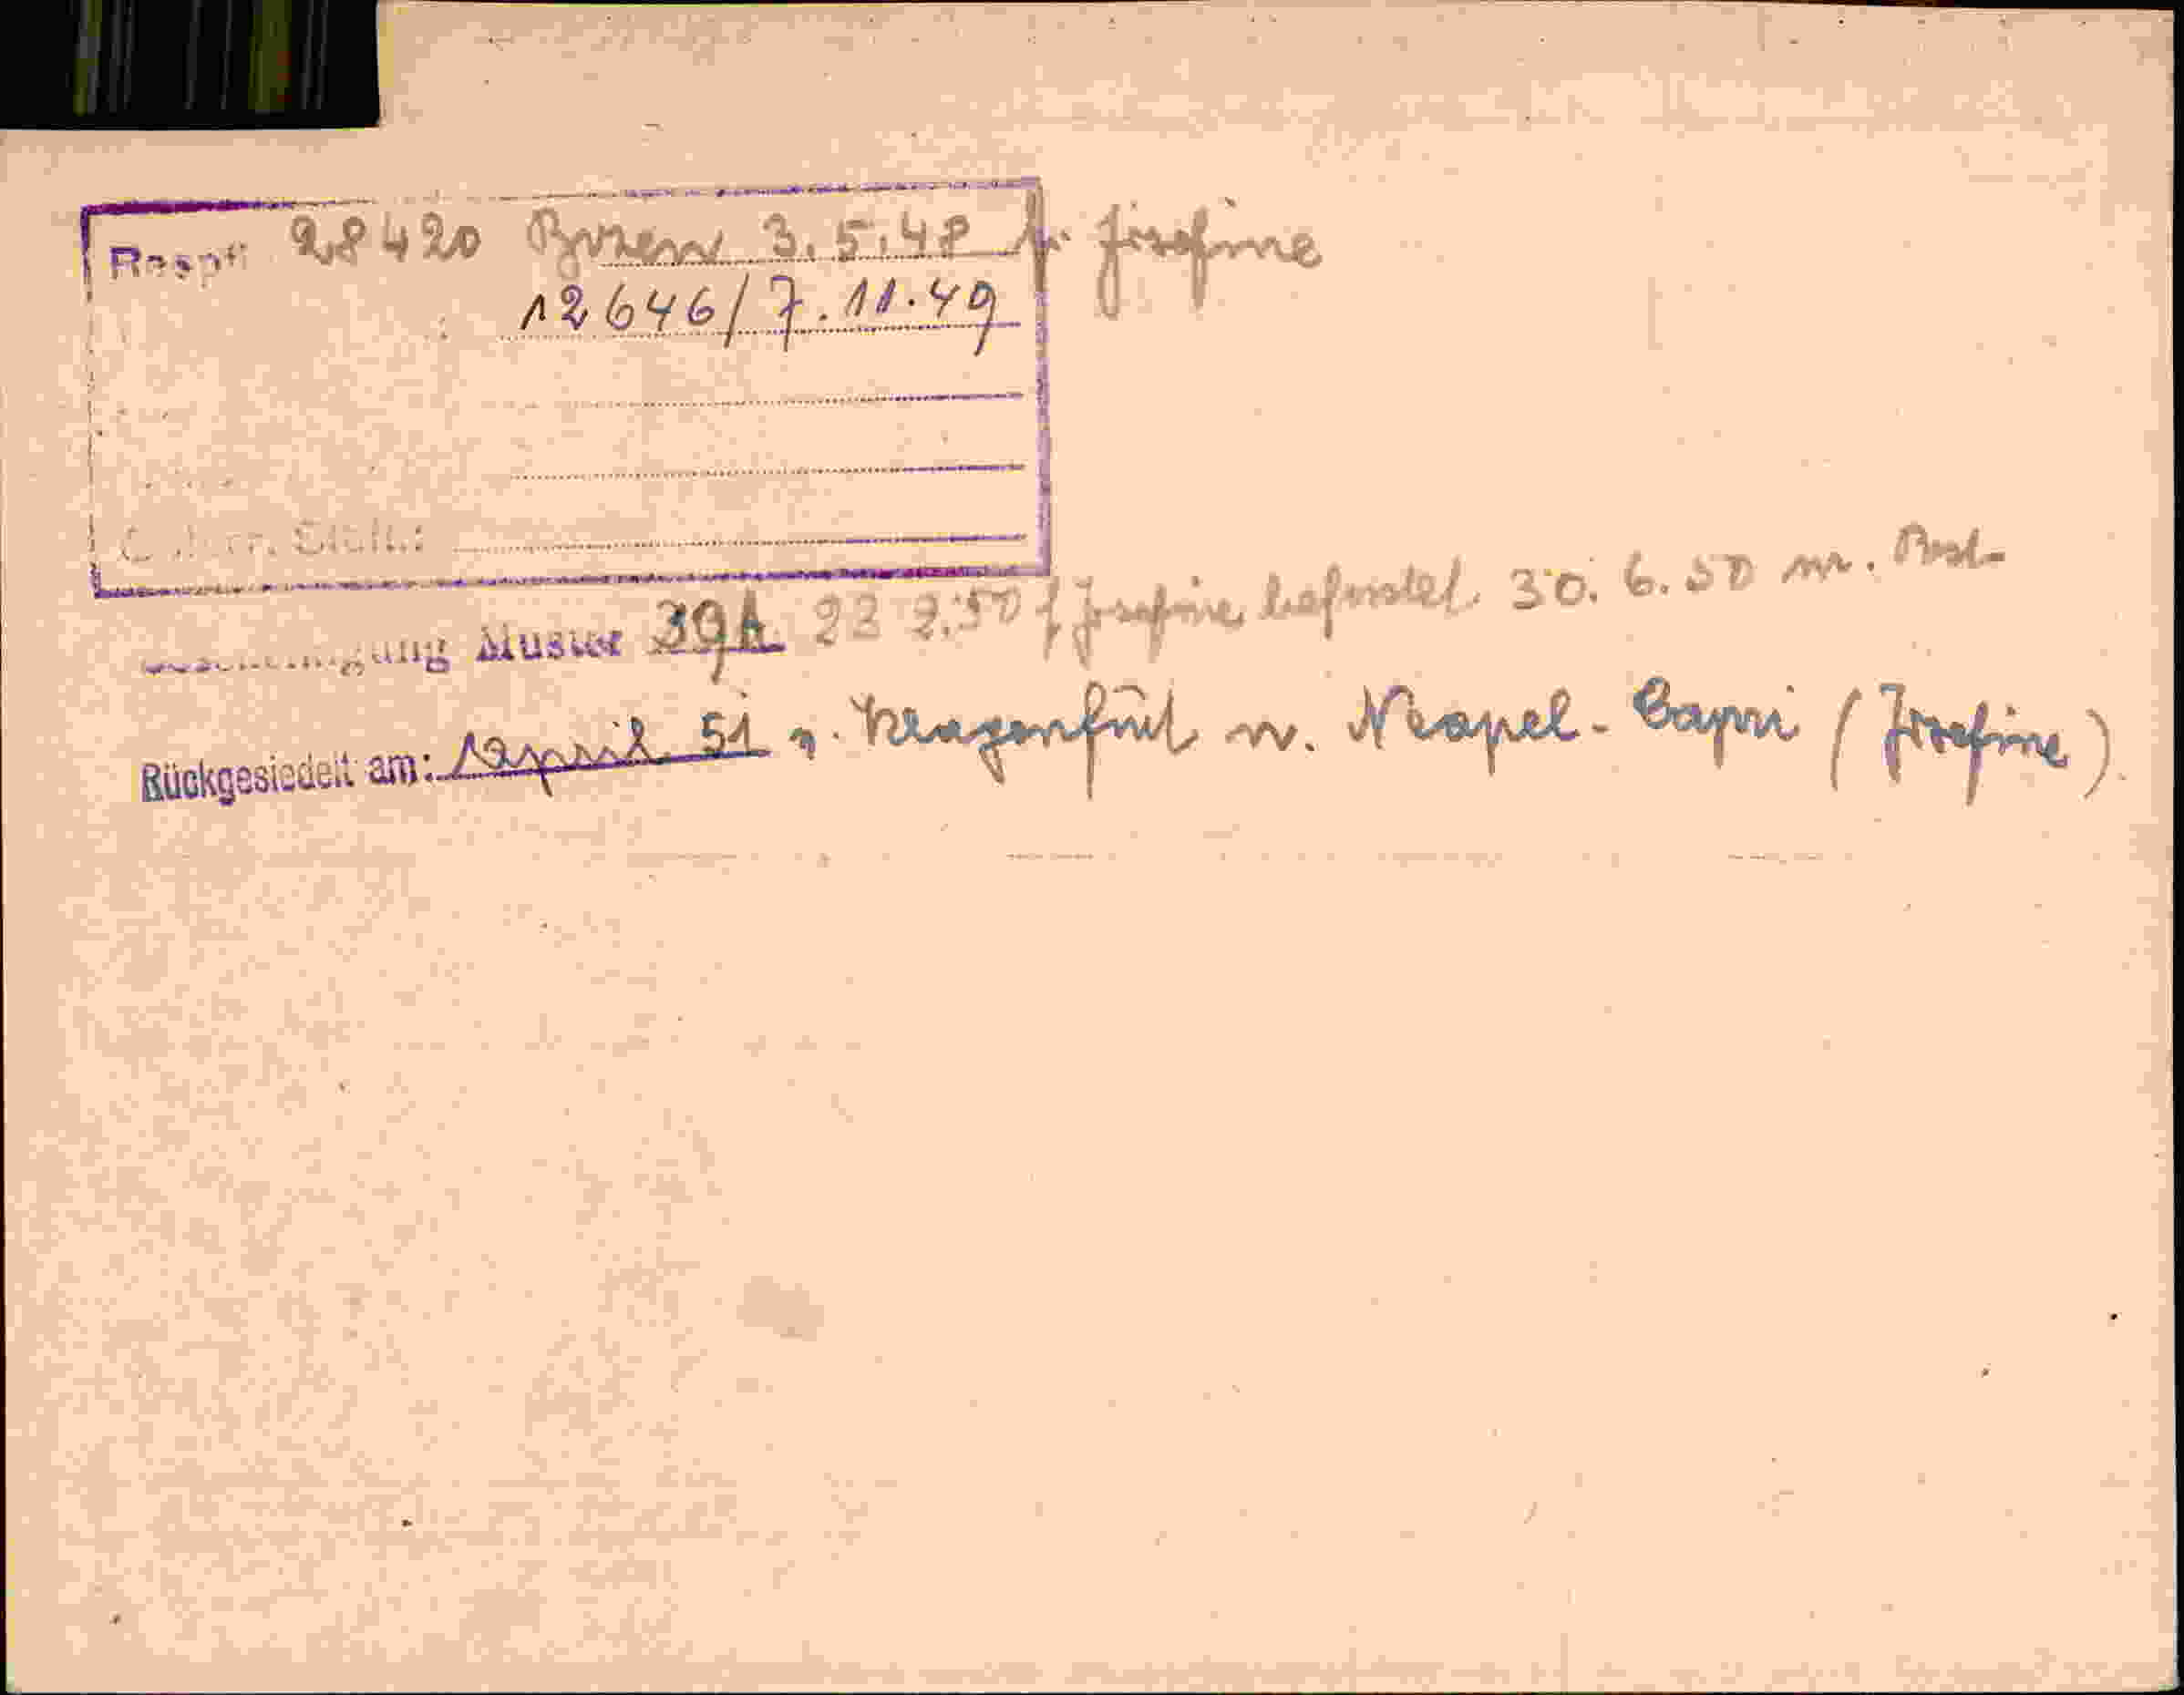 28420 Bozen 3.5.48 f. Josefine
12646/7.11.49
Muster 39A 22 2.50 f Josefine befristet 30.6.50
Rückgesiedelt am: April 51 v. Klagenfurt n. Neapel-Capri (Josefine)